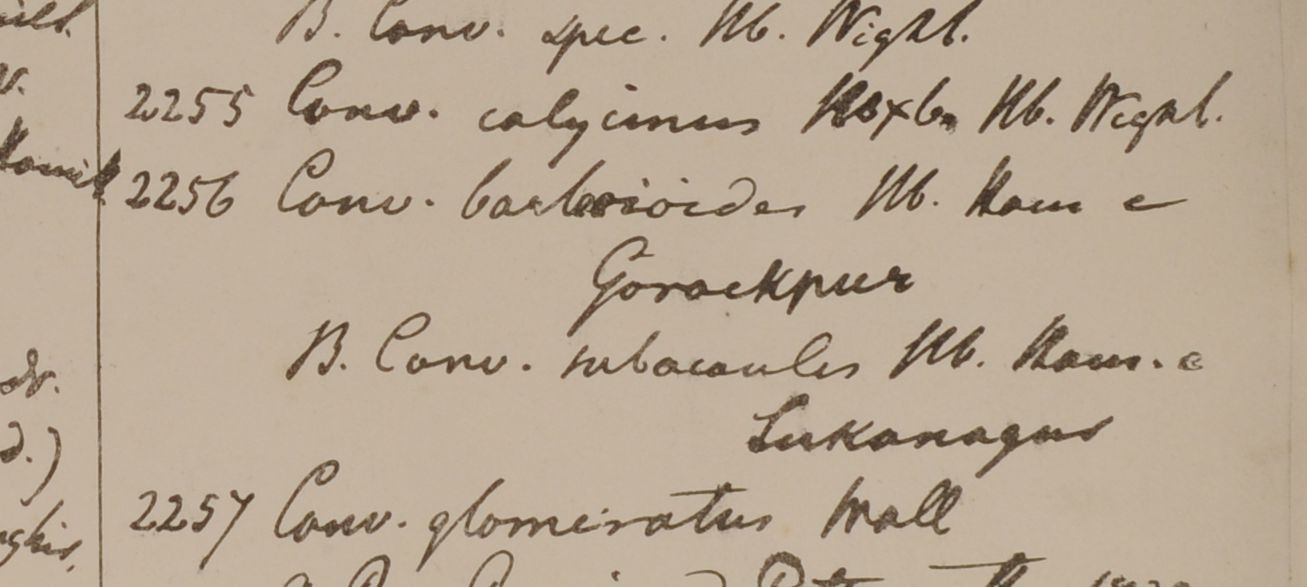 B. Conv. spec. Hb. Wight.
2255 Conv. calycinus Roxb. Hb. Wight.
2256 Conv. barlerioides Hb. Ham e
Gorackpur
B. Conv. subacaulis Hb. Ham. e
Lukanagur
2257 Conv. glomeratus Wall